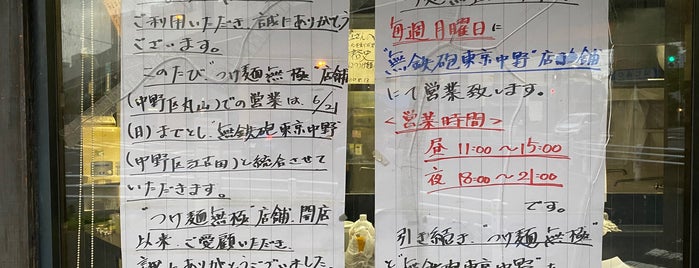 ご利用いただき、誠にありがとう
ございます。
このたび"つけ麺無極"店舗
(中野区丸山)での営業は、6/21
(日)までとし"無鉄砲東京中野"
(中野区江古田)と統合させて
いただきます。
"つけ麺無極"店舗、開店
以来、ご愛顧いただき、
誠にありがとうございました。
毎週月曜日に
"無鉄砲東京中野"店舗
にて営業致します。
<営業時間>
昼 11:00〜15:00
夜 18:00〜21:00
です。
引き続き、"つけ麺無極"
と"無鉄砲東京中野"を